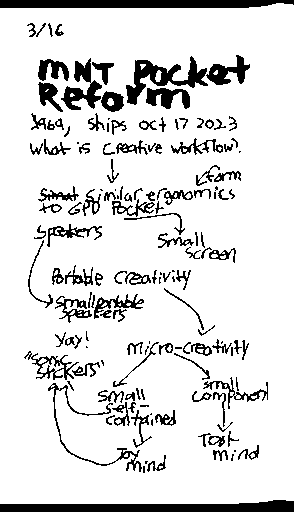 3/16
MNT Pocket
Reform
$969, Ships Oct 17 2023
What is creative workflow?
form
similar ergonomics
to GPD Pocket
speakers
Small
screen
Portable Creativity
small portable
speakers
Yay!
"sonic
stickers"
micro-creativity
small
self-
contained
small
component
Toy
mind
Task
mind